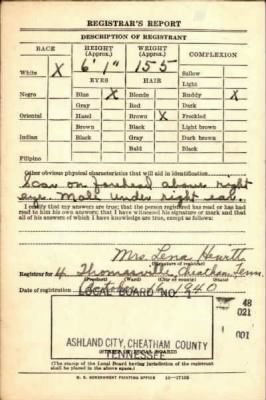 REGISTRAR'S REPORT
DESCRIPTION OF REGISTRANT
RACE HEIGHT (Approx.) WEIGHT (Approx.) COMPLEXION
White X 6' 1" 155 Sallow
EYES HAIR Light
Negro Blue X Blonde Ruddy X
Gray Red Dark
Oriental Hazel Brown X Freckled
Brown Black Light brown
Indian Black Gray Dark brown
Bald Black
Filipino
Other obvious physical characteristics that will aid in identification
Scar on forehead above right
eye. Mole under right ear.
I certify that my answers are true; that the person registered has read or has had
read to him his own answers; that I have witnessed his signature or mark and that
all of his answers of which I have knowledge are true, except as follows:
Mrs. Lena Hewitt
(Signature of registrar)
Registrar for 4 Thomasville, Cheatham, Tenn.
(Precinct) (Ward) (City or county) (State)
Date of registration October 16 1940
LOCAL BOARD NO. 1
48
021
001
ASHLAND CITY, CHEATHAM COUNTY
TENNESSEE
(STAMP OF LOCAL BOARD)
(The stamp of the Local Board having jurisdiction of the registrant
shall be placed in the above space.)
U. S. GOVERNMENT PRINTING OFFICE 16—17105